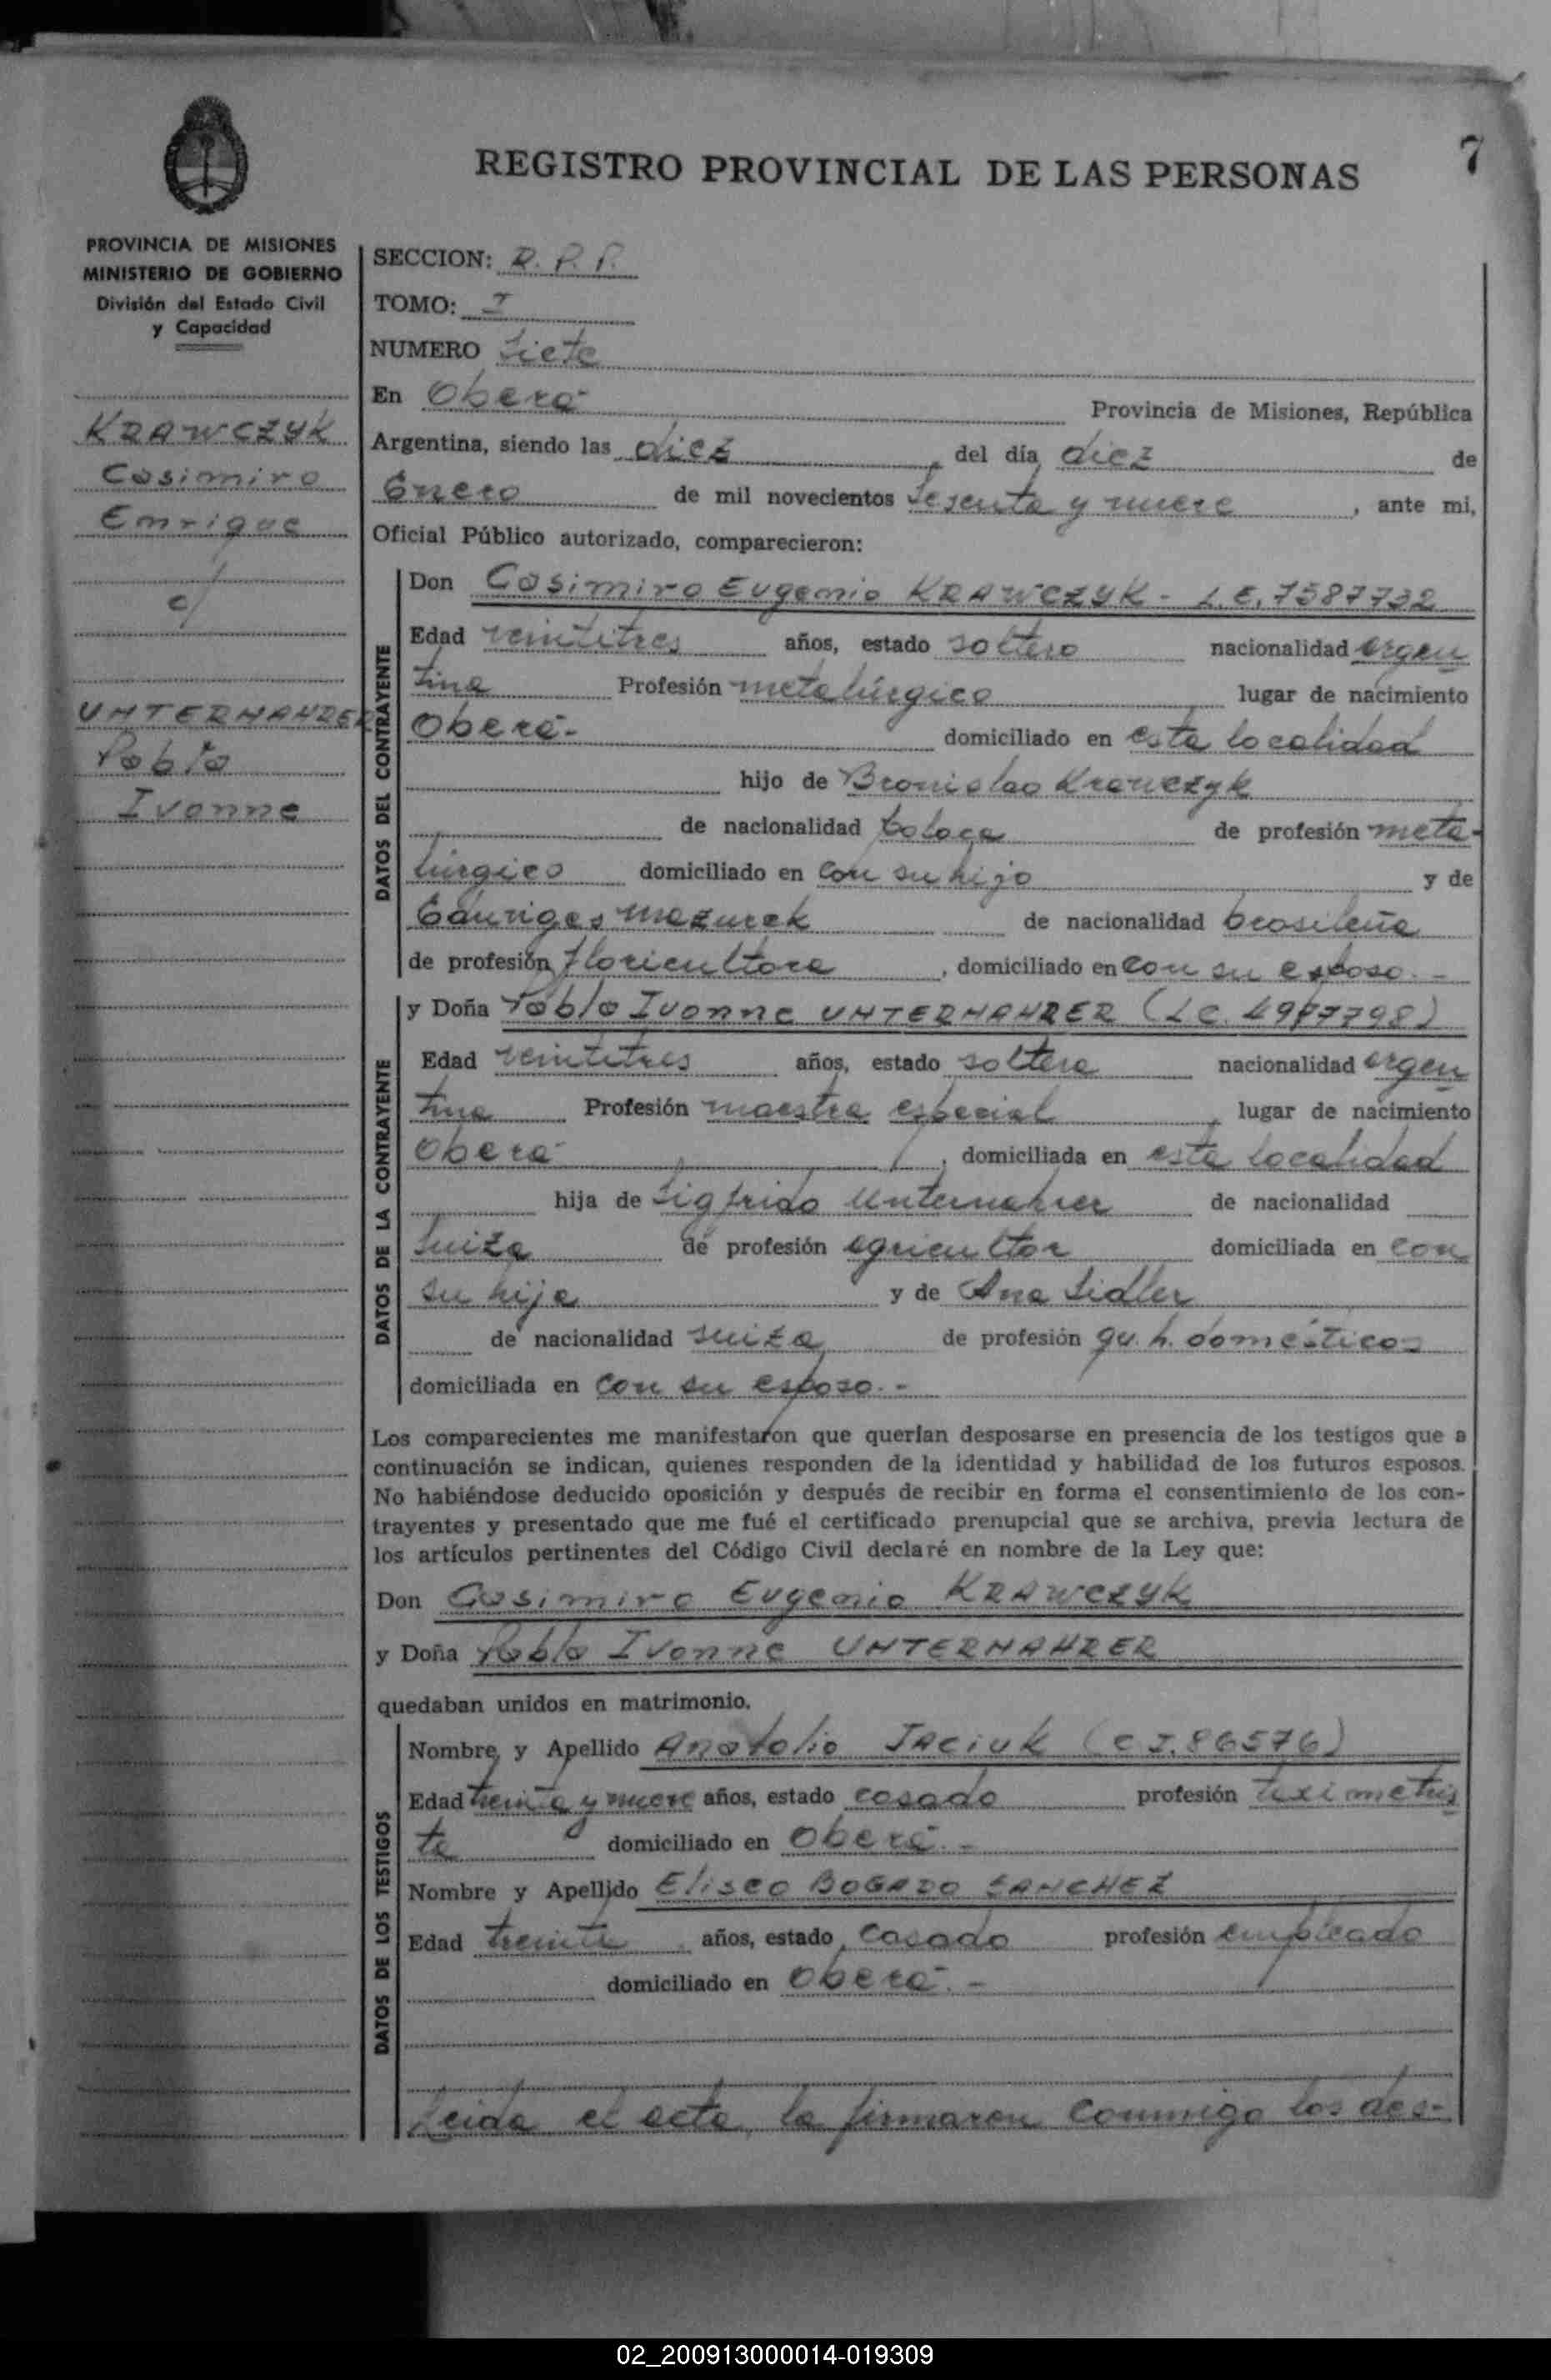 7
REGISTRO PROVINCIAL DE LAS PERSONAS
PROVINCIA DE MISIONES
MINISTERIO DE GOBIERNO
División del Estado Civil
y Capacidad
KRAWCZYK
Casimiro
Enrique
c/
UNTERNAHRER
Pabla
Ivonne
SECCION: R. P. P.
TOMO: I
NUMERO Siete
En Oberá Provincia de Misiones, República
Argentina, siendo las diez, del día diez de
Enero de mil novecientos Sesenta y nueve, ante mi,
Oficial Público autorizado, comparecieron:
DATOS DEL CONTRAYENTE
Don Casimiro Eugenio KRAWCZYK - L.E. 7587732
Edad veintitres años, estado soltero nacionalidad argen
tina Profesión metalúrgico lugar de nacimiento
Oberá- domiciliado en esta localidad
hijo de Bronislao Krawczyk
de nacionalidad polaca de profesión meta-
lúrgico domiciliado en con su hijo y de
Eduviges Mazurek de nacionalidad brasileña
de profesión floricultora, domiciliado en con su esposo.-
DATOS DE LA CONTRAYENTE
y Doña Pabla Ivonne UNTERNAHRER (LC. 4977798)
Edad veintitres años, estado soltera nacionalidad argen
tina Profesión maestra especial, lugar de nacimiento
Oberá, domiciliada en esta localidad
hija de Sigfrido Unternahrer de nacionalidad
Suiza de profesión agricultor domiciliada en con
su hija y de Ana Sidler
de nacionalidad suiza de profesión qu. h. domésticos
domiciliada en con su esposo.-
Los comparecientes me manifestaron que querían desposarse en presencia de los testigos que a
continuación se indican, quienes responden de la identidad y habilidad de los futuros esposos.
No habiéndose deducido oposición y después de recibir en forma el consentimiento de los con-
trayentes y presentado que me fué el certificado prenupcial que se archiva, previa lectura de
los artículos pertinentes del Código Civil declaré en nombre de la Ley que:
Don Casimiro Eugenio KRAWCZYK
y Doña Pabla Ivonne UNTERNAHRER
quedaban unidos en matrimonio.
DATOS DE LOS TESTIGOS
Nombre y Apellido Anatolio JACIUK (C I. 86576)
Edad treinta y nueve años, estado casado profesión taximetris
ta domiciliado en Oberá.-
Nombre y Apellido Eliseo BOGADO SANCHEZ
Edad treinta años, estado casado profesión empleado
domiciliado en Oberá.-
Leida el acta, la firmaron conmigo los des-
02_200913000014-019309